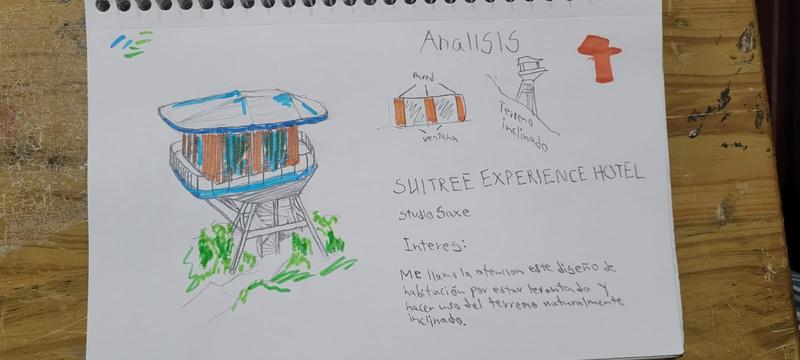 Analisis
Pared
ventana
Terreno
inclinado
SUITREE EXPERIENCE HOTEL
Studio Saxe
Interes:
ME llamo la atencion este diseño de
habitación por estar levantado y
hacer uso del terreno naturalmente
inclinado.